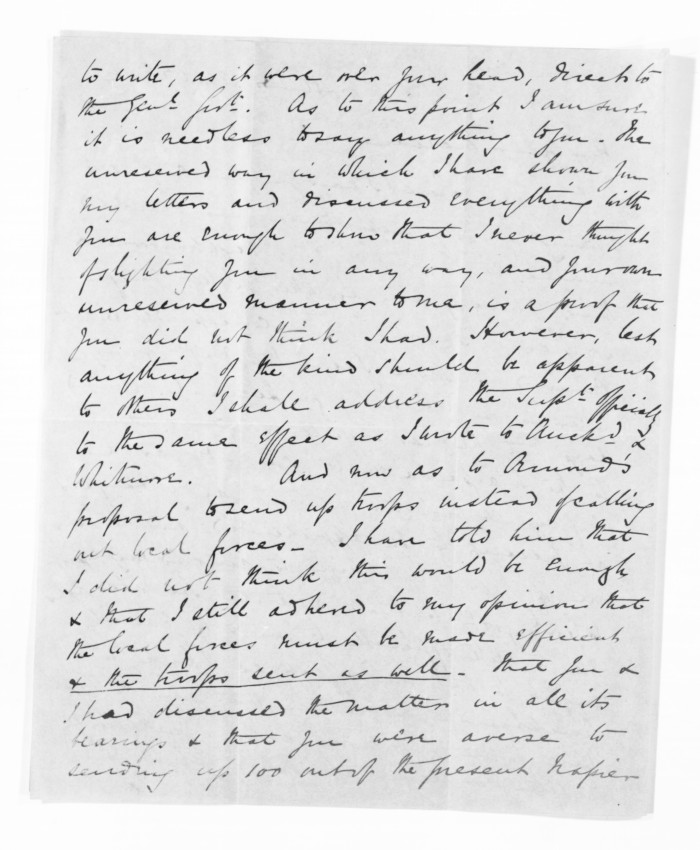 to write, as it were over your head, direct to
the Genl. Govt. As to this point I am sure
it is needless to say anything to you - The
unreserved way in which I have shown you
my letters and discussed everything with
you are enough to show that I never thought
of slighting you in any way, and your own
unreserved manner to me, is a proof that
you did not think I had. However, lest
anything of the kind should be apparent
to others I shall address the Supt. officially
to the same effect as I wrote to Auckd. &
Whitmore. And now as to Ormond's
proposal to send up troops instead of calling
out local forces - I have told him that
I did not think this would be enough
& that I still adhered to my opinion that
the local forces must be made efficient
& the troops sent as well - that you &
I had discussed the matter in all its
bearings & that you were averse to
sending up 100 out of the present Napier